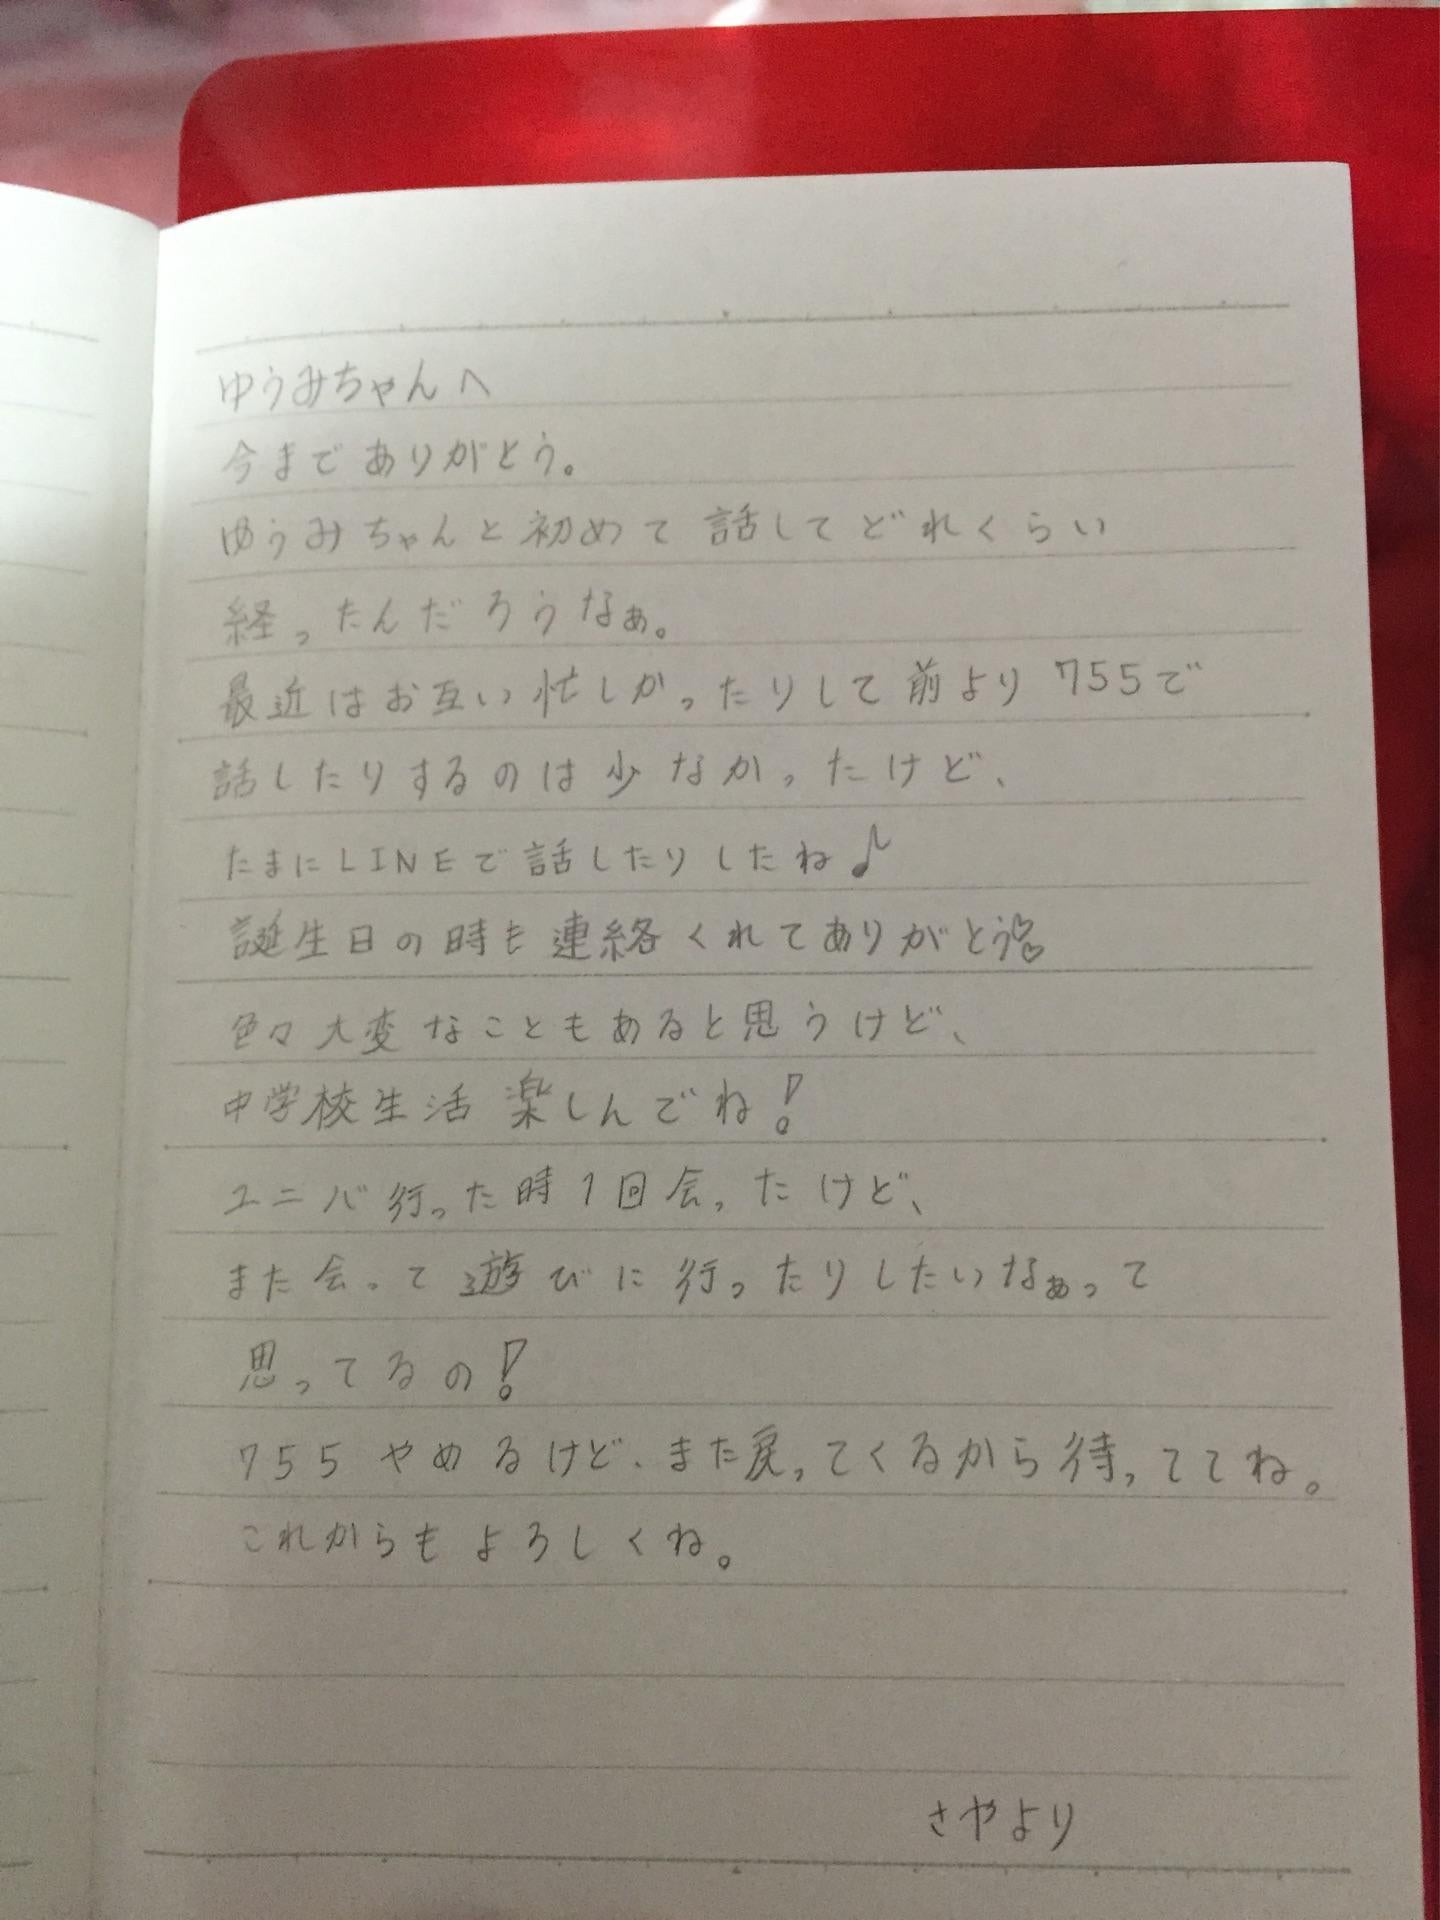 ゆぅみちゃんへ
今までありがとう。
ゆぅみちゃんと初めて話してどれくらい
経ったんだろうなぁ。
最近はお互い忙しかったりして前より755で
話したりするのは少なかったけど、
たまにLINEで話したりしたね♪
誕生日の時も連絡くれてありがとう♡♡
色々大変なこともあると思うけど、
中学校生活楽しんでね!
ユニバ行った時1回会ったけど、
また会って遊びに行ったりしたいなぁって
思ってるの!
755やめるけど、また戻ってくるから待っててね。
これからもよろしくね。
さやより